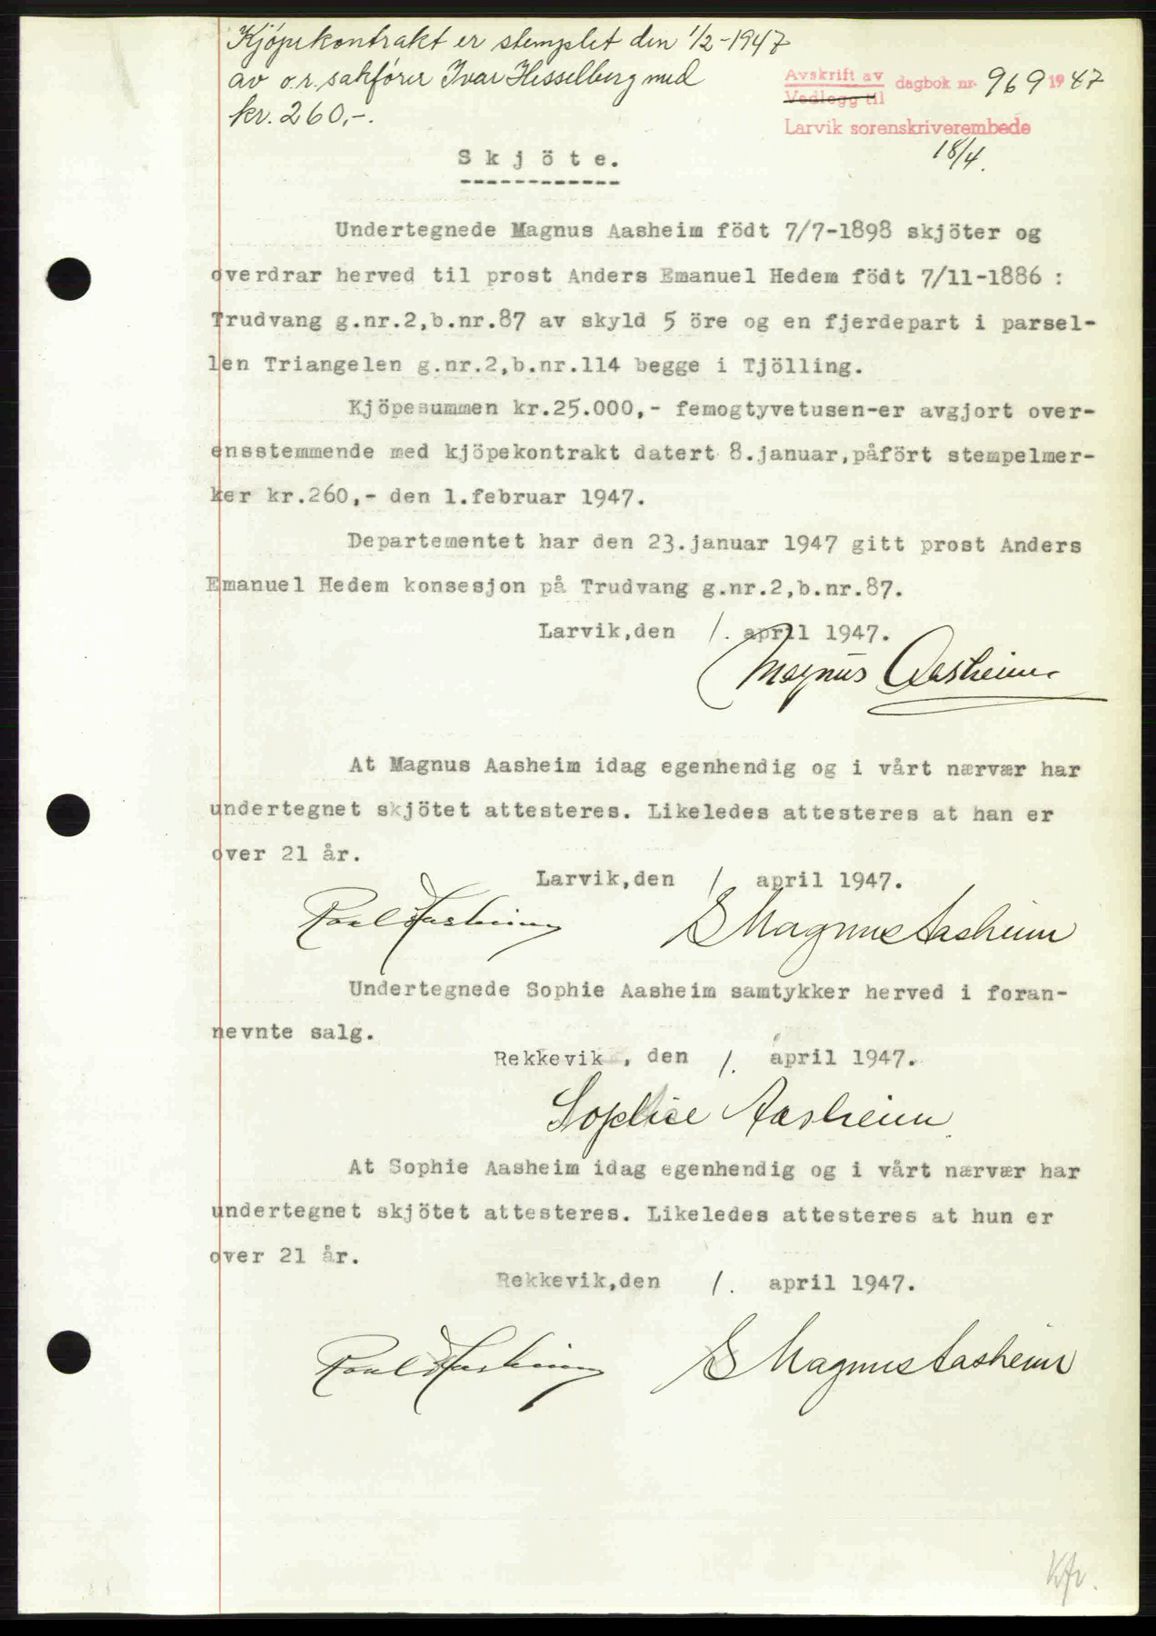 Kjöpekontrakt er stemplet den 1/2-1947
av o.r.sakförer Ivar Hesselberg med
kr. 260,-.
Avskrift av
Vedlegg til
dagbok nr. 969 1947
Larvik sorenskriverembede
18/4.
Skjöte.
------------
Undertegnede Magnus Aasheim födt 7/7-1898 skjöter og
overdrar herved til prost Anders Emanuel Hedem födt 7/11-1886 :
Trudvang g.nr.2,b.nr.87 av skyld 5 öre og en fjerdepart i parsel-
len Triangelen g.nr.2,b.nr.114 begge i Tjölling.
Kjöpesummen kr.25.000,- femogtyvetusen-er avgjort over-
ensstemmende med kjöpekontrakt datert 8.januar,påfört stempelmer-
ker kr.260,- den 1.februar 1947.
Departementet har den 23.januar 1947 gitt prost Anders
Emanuel Hedem konsesjon på Trudvang g.nr.2,b.nr.87.
Larvik,den 1. april 1947.
Magnus Aasheim
At Magnus Aasheim idag egenhendig og i vårt nærvær har
undertegnet skjötet attesteres. Likeledes attesteres at han er
over 21 år.
Larvik,den 1 april 1947.
Roald Aasheim S Magnus Aasheim
Undertegnede Sophie Aasheim samtykker herved i foran-
nevnte salg.
Rekkevik , den 1. april 1947.
Sophie Aasheim
At Sophie Aasheim idag egenhendig og i vårt nærvær har
undertegnet skjötet attesteres. Likeledes attesteres at hun er
over 21 år.
Rekkevik,den 1. april 1947.
Roald Aasheim S Magnus Aasheim
Kfr.